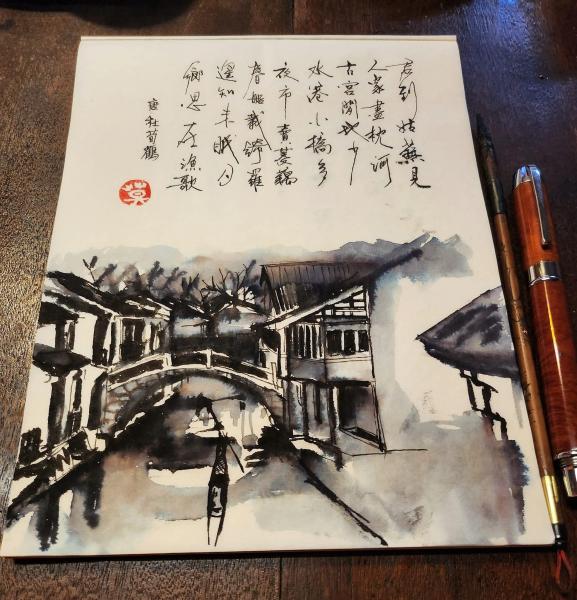 君到姑蘇見
人家盡枕河
古宮閒地少
水港小橋多
夜市賣菱藕
春船載綺羅
遙知未眠月
鄉思在漁歌
唐杜荀鶴